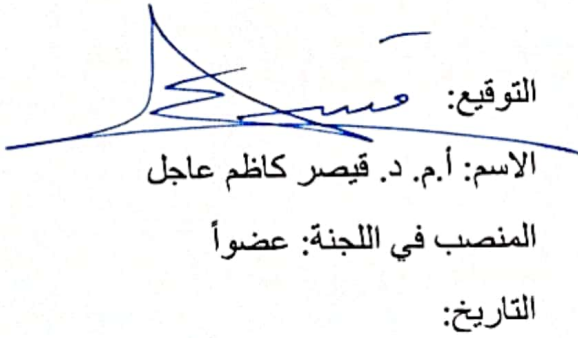 التوقيع:
الاسم: أ.م. د. قيصر كاظم عاجل
المنصب في اللجنة: عضواً
التاريخ: